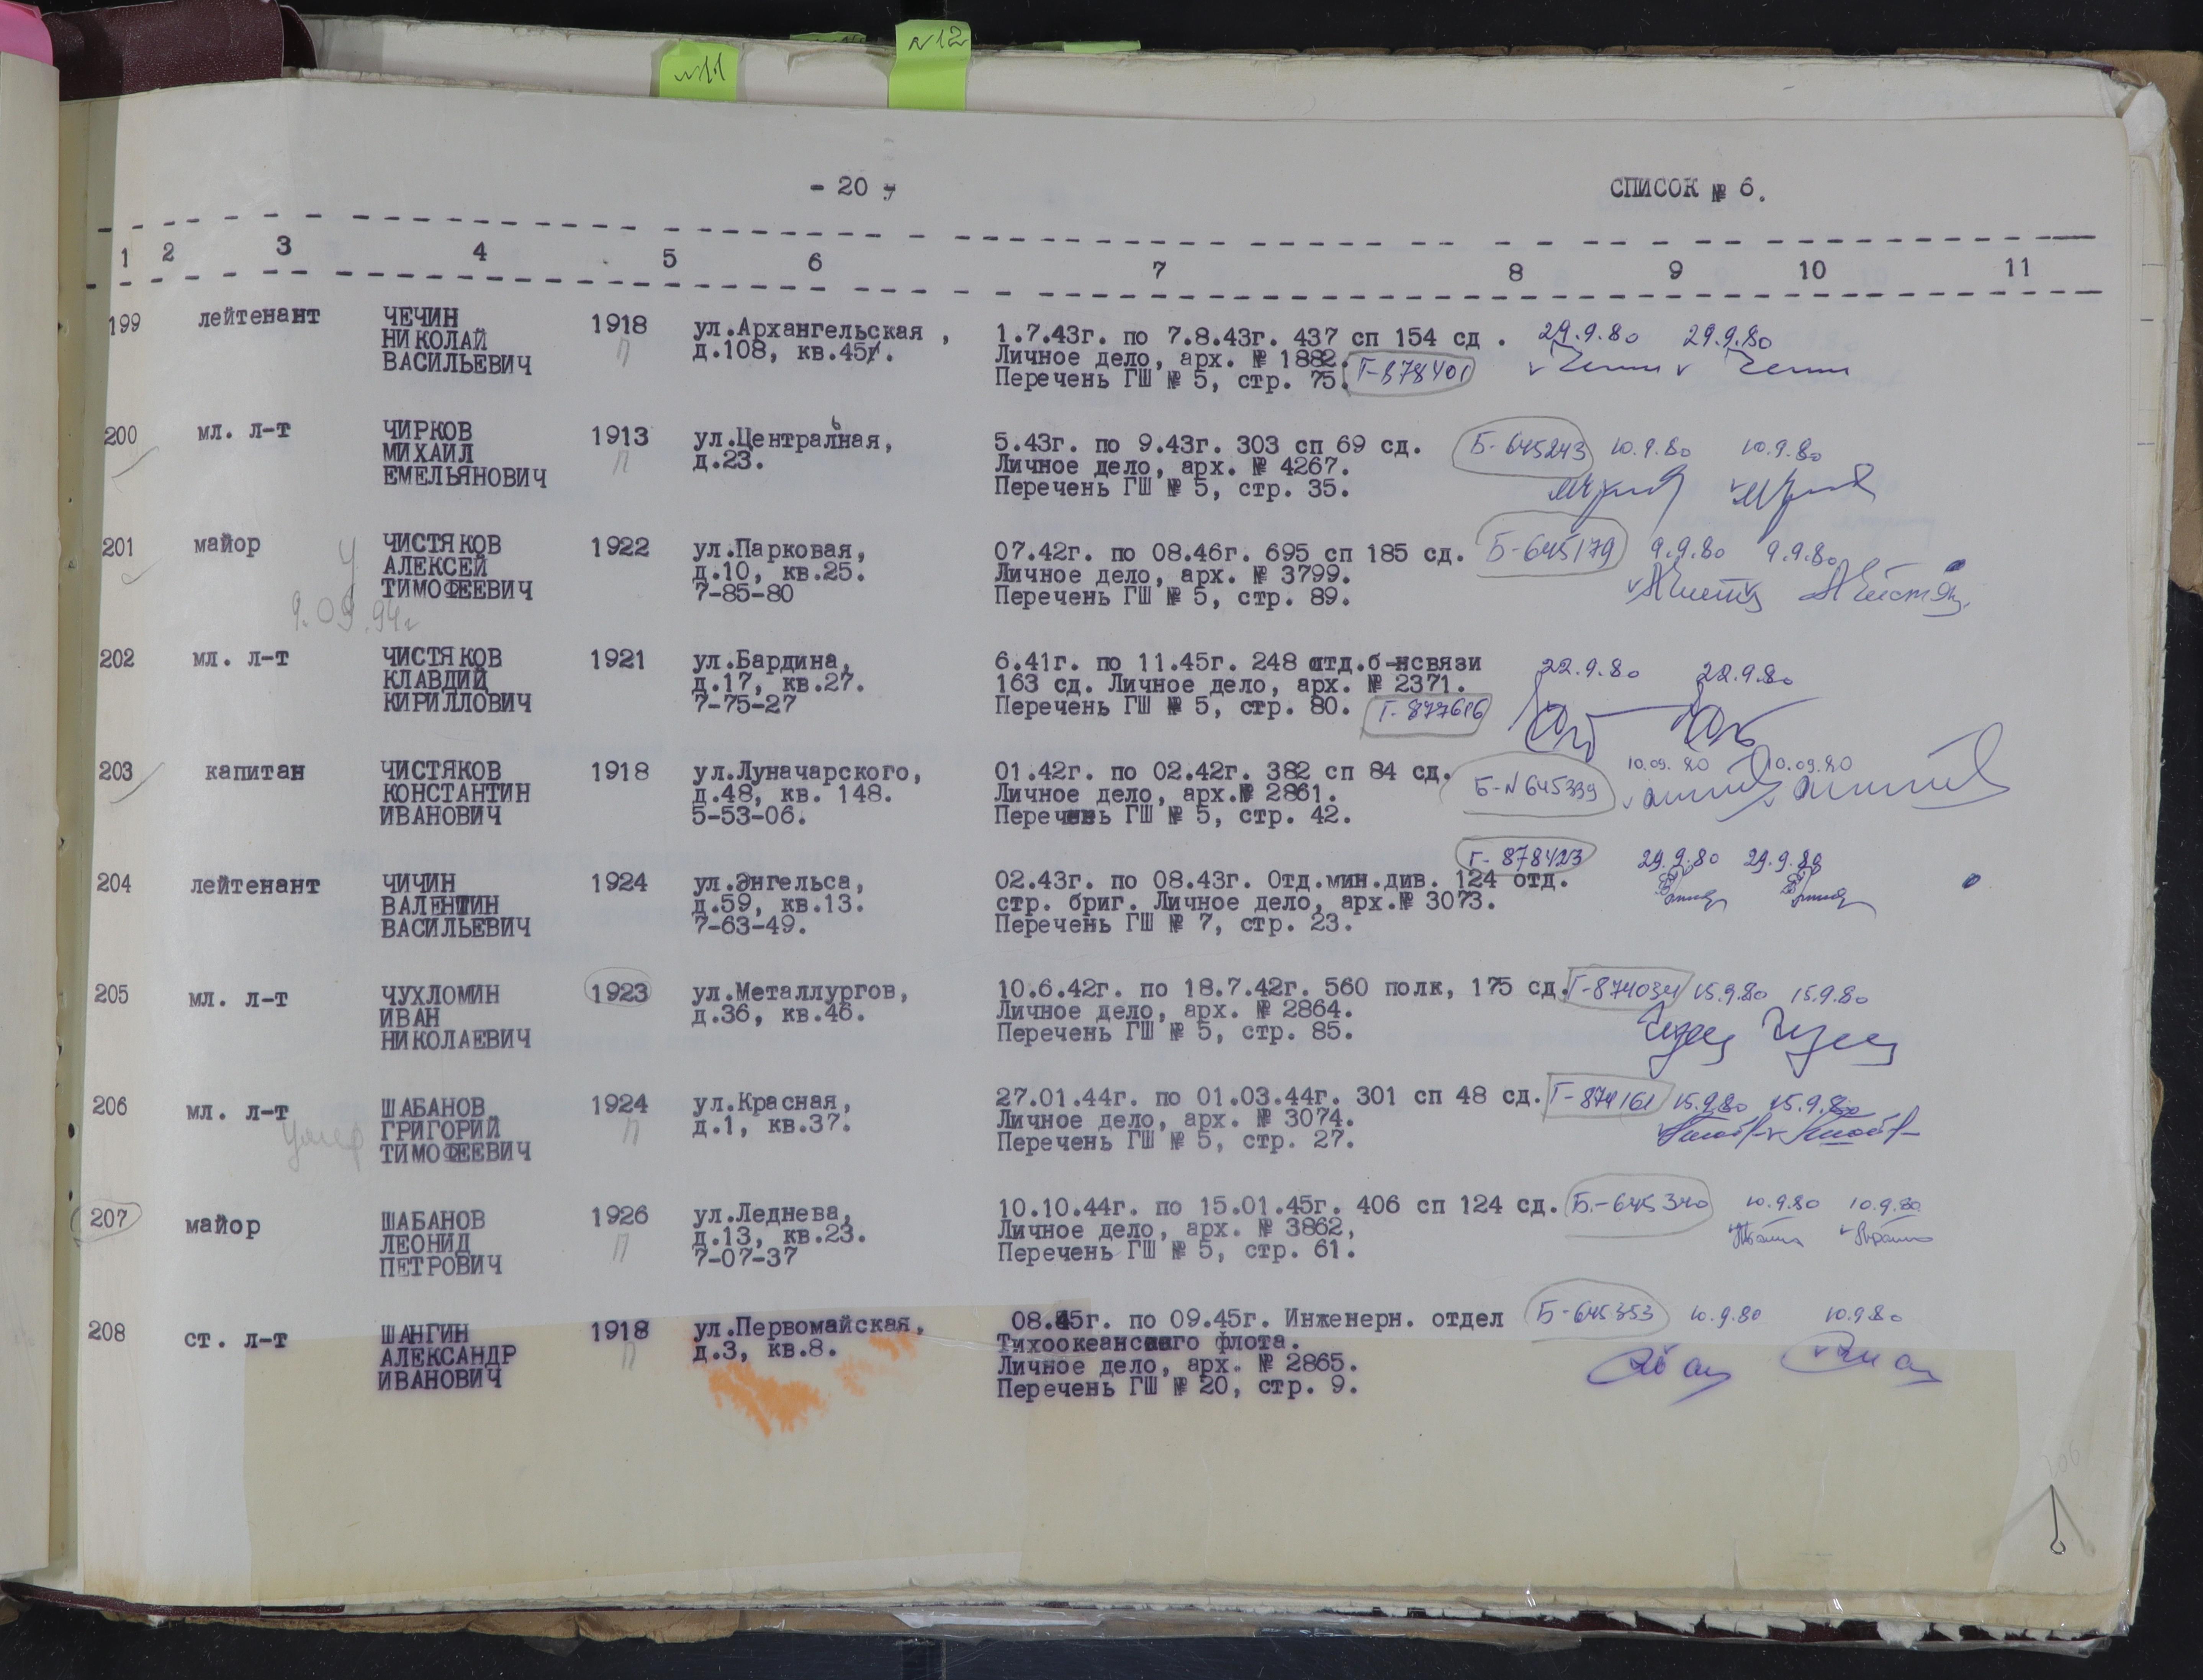 №11
№12
- 20 -
СПИСОК № 6.
1 2 3 4 5 6 7 8 9 10 11
199 лейтенант ЧЕЧИН 1918 ул.Архангельская , 1.7.43г. по 7.8.43г. 437 сп 154 сд . 29.9.80 29.9.80
НИКОЛАЙ П д.108, кв.45. Личное дело, арх. № 1882.
ВАСИЛЬЕВИЧ Перечень ГШ № 5, стр. 75. Г-878401
200 мл. л-т ЧИРКОВ 1913 ул.Центральная, 5.43г. по 9.43г. 303 сп 69 сд. Б-645243 10.9.80 10.9.80
МИХАИЛ П д.23. Личное дело, арх. № 4267.
ЕМЕЛЬЯНОВИЧ Перечень ГШ № 5, стр. 35.
201 майор У ЧИСТЯКОВ 1922 ул.Парковая, 07.42г. по 08.46г. 695 сп 185 сд. Б-645179 9.9.80 9.9.80
АЛЕКСЕЙ д.10, кв.25. Личное дело, арх. № 3799.
ТИМОФЕЕВИЧ 7-85-80 Перечень ГШ № 5, стр. 89.
9.09.94г
202 мл. л-т ЧИСТЯКОВ 1921 ул.Бардина, 6.41г. по 11.45г. 248 отд.б-нсвязи 22.9.80 22.9.80
КЛАВДИЙ д.17, кв.27. 163 сд. Личное дело, арх. № 2371.
КИРИЛЛОВИЧ 7-75-27 Перечень ГШ № 5, стр. 80. Г-877616
203 капитан ЧИСТЯКОВ 1918 ул.Луначарского, 01.42г. по 02.42г. 382 сп 84 сд. Б-N645339 10.09.80 10.09.80
КОНСТАНТИН д.48, кв. 148. Личное дело, арх.№ 2861.
ИВАНОВИЧ 5-53-06. Перечень ГШ № 5, стр. 42.
Г-878423 29.9.80 29.9.80
204 лейтенант ЧИЧИН 1924 ул.Энгельса, 02.43г. по 08.43г. Отд.мин.див. 124 отд.
ВАЛЕНТИН д.59, кв.13. стр. бриг. Личное дело, арх.№ 3073.
ВАСИЛЬЕВИЧ 7-63-49. Перечень ГШ № 7, стр. 23.
205 мл. л-т ЧУХЛОМИН 1923 ул.Металлургов, 10.6.42г. по 18.7.42г. 560 полк, 175 сд. Г-874034 15.9.80 15.9.80
ИВАН д.36, кв.46. Личное дело, арх. № 2864.
НИКОЛАЕВИЧ Перечень ГШ № 5, стр. 85.
206 мл. л-т ШАБАНОВ 1924 ул.Красная, 27.01.44г. по 01.03.44г. 301 сп 48 сд. Г-874161 15.9.80 15.9.80
умер ГРИГОРИЙ П д.1, кв.37. Личное дело, арх. № 3074.
ТИМОФЕЕВИЧ Перечень ГШ № 5, стр. 27.
207 майор ШАБАНОВ 1926 ул.Леднева, 10.10.44г. по 15.01.45г. 406 сп 124 сд. Б-645340 10.9.80 10.9.80
ЛЕОНИД П д.13, кв.23. Личное дело, арх. № 3862,
ПЕТРОВИЧ 7-07-37 Перечень ГШ № 5, стр. 61.
208 ст. л-т ШАНГИН 1918 ул.Первомайская, 08.45г. по 09.45г. Инженерн. отдел Б-645353 10.9.80 10.9.80
АЛЕКСАНДР П д.3, кв.8. Тихоокеанского флота.
ИВАНОВИЧ Личное дело, арх. № 2865.
Перечень ГШ № 20, стр. 9.